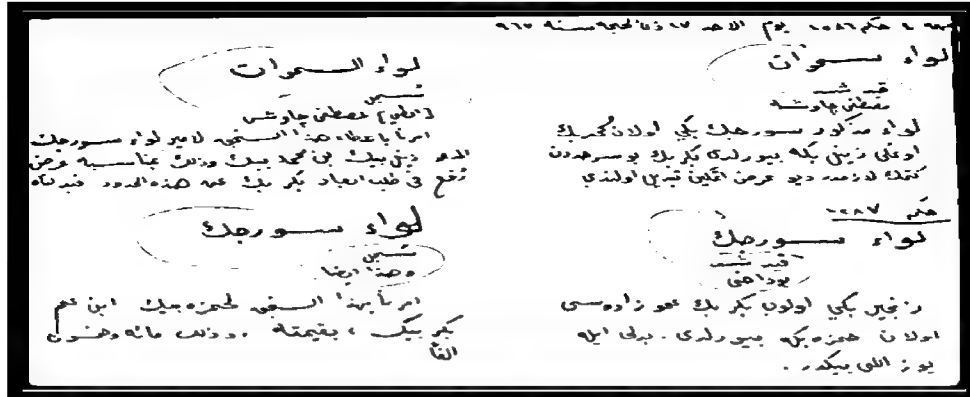 حكم ١٠٨٦ يوم الاحد ١٧ ذى الحجه سنه ٩٦٧
لواء سموات
قيد شد
مصطفى چاوشه
لواء مذكور سورجك بكى اولان محمد بك
اوغلى زينى بكه بيورلدى بكر بك بو سرحددن
كتمك لازمدر ديو عرض اتمكين تبديل اولندى
حكم ١٠٨٧
لواء سورجك
قيد شد
بو داخى
زنجير بكى اولان بكر بك عمو زاده سى
اولان حمزه بكه بيورلدى. بدلى ايله
يوز اللى بيكدر.
لواء السموات
تسجيل
[اعطي] مصطفى چاوش
امرنا باعطاء هذا السنجق لامير لواء سورجك
المدعو زيني بيك بن محمد بيك وذلك بمناسبة عرض
رفع في طلب ابعاد بكر بك عن هذه الحدود فبدلناه
لواء سورجك
تسجيل
وهذا ايضا
امرنا بهذا السنجق لحمزه بيك ابن عم
بكر بيك ، بقيمته. وذلك مائه وخمسون
الفا